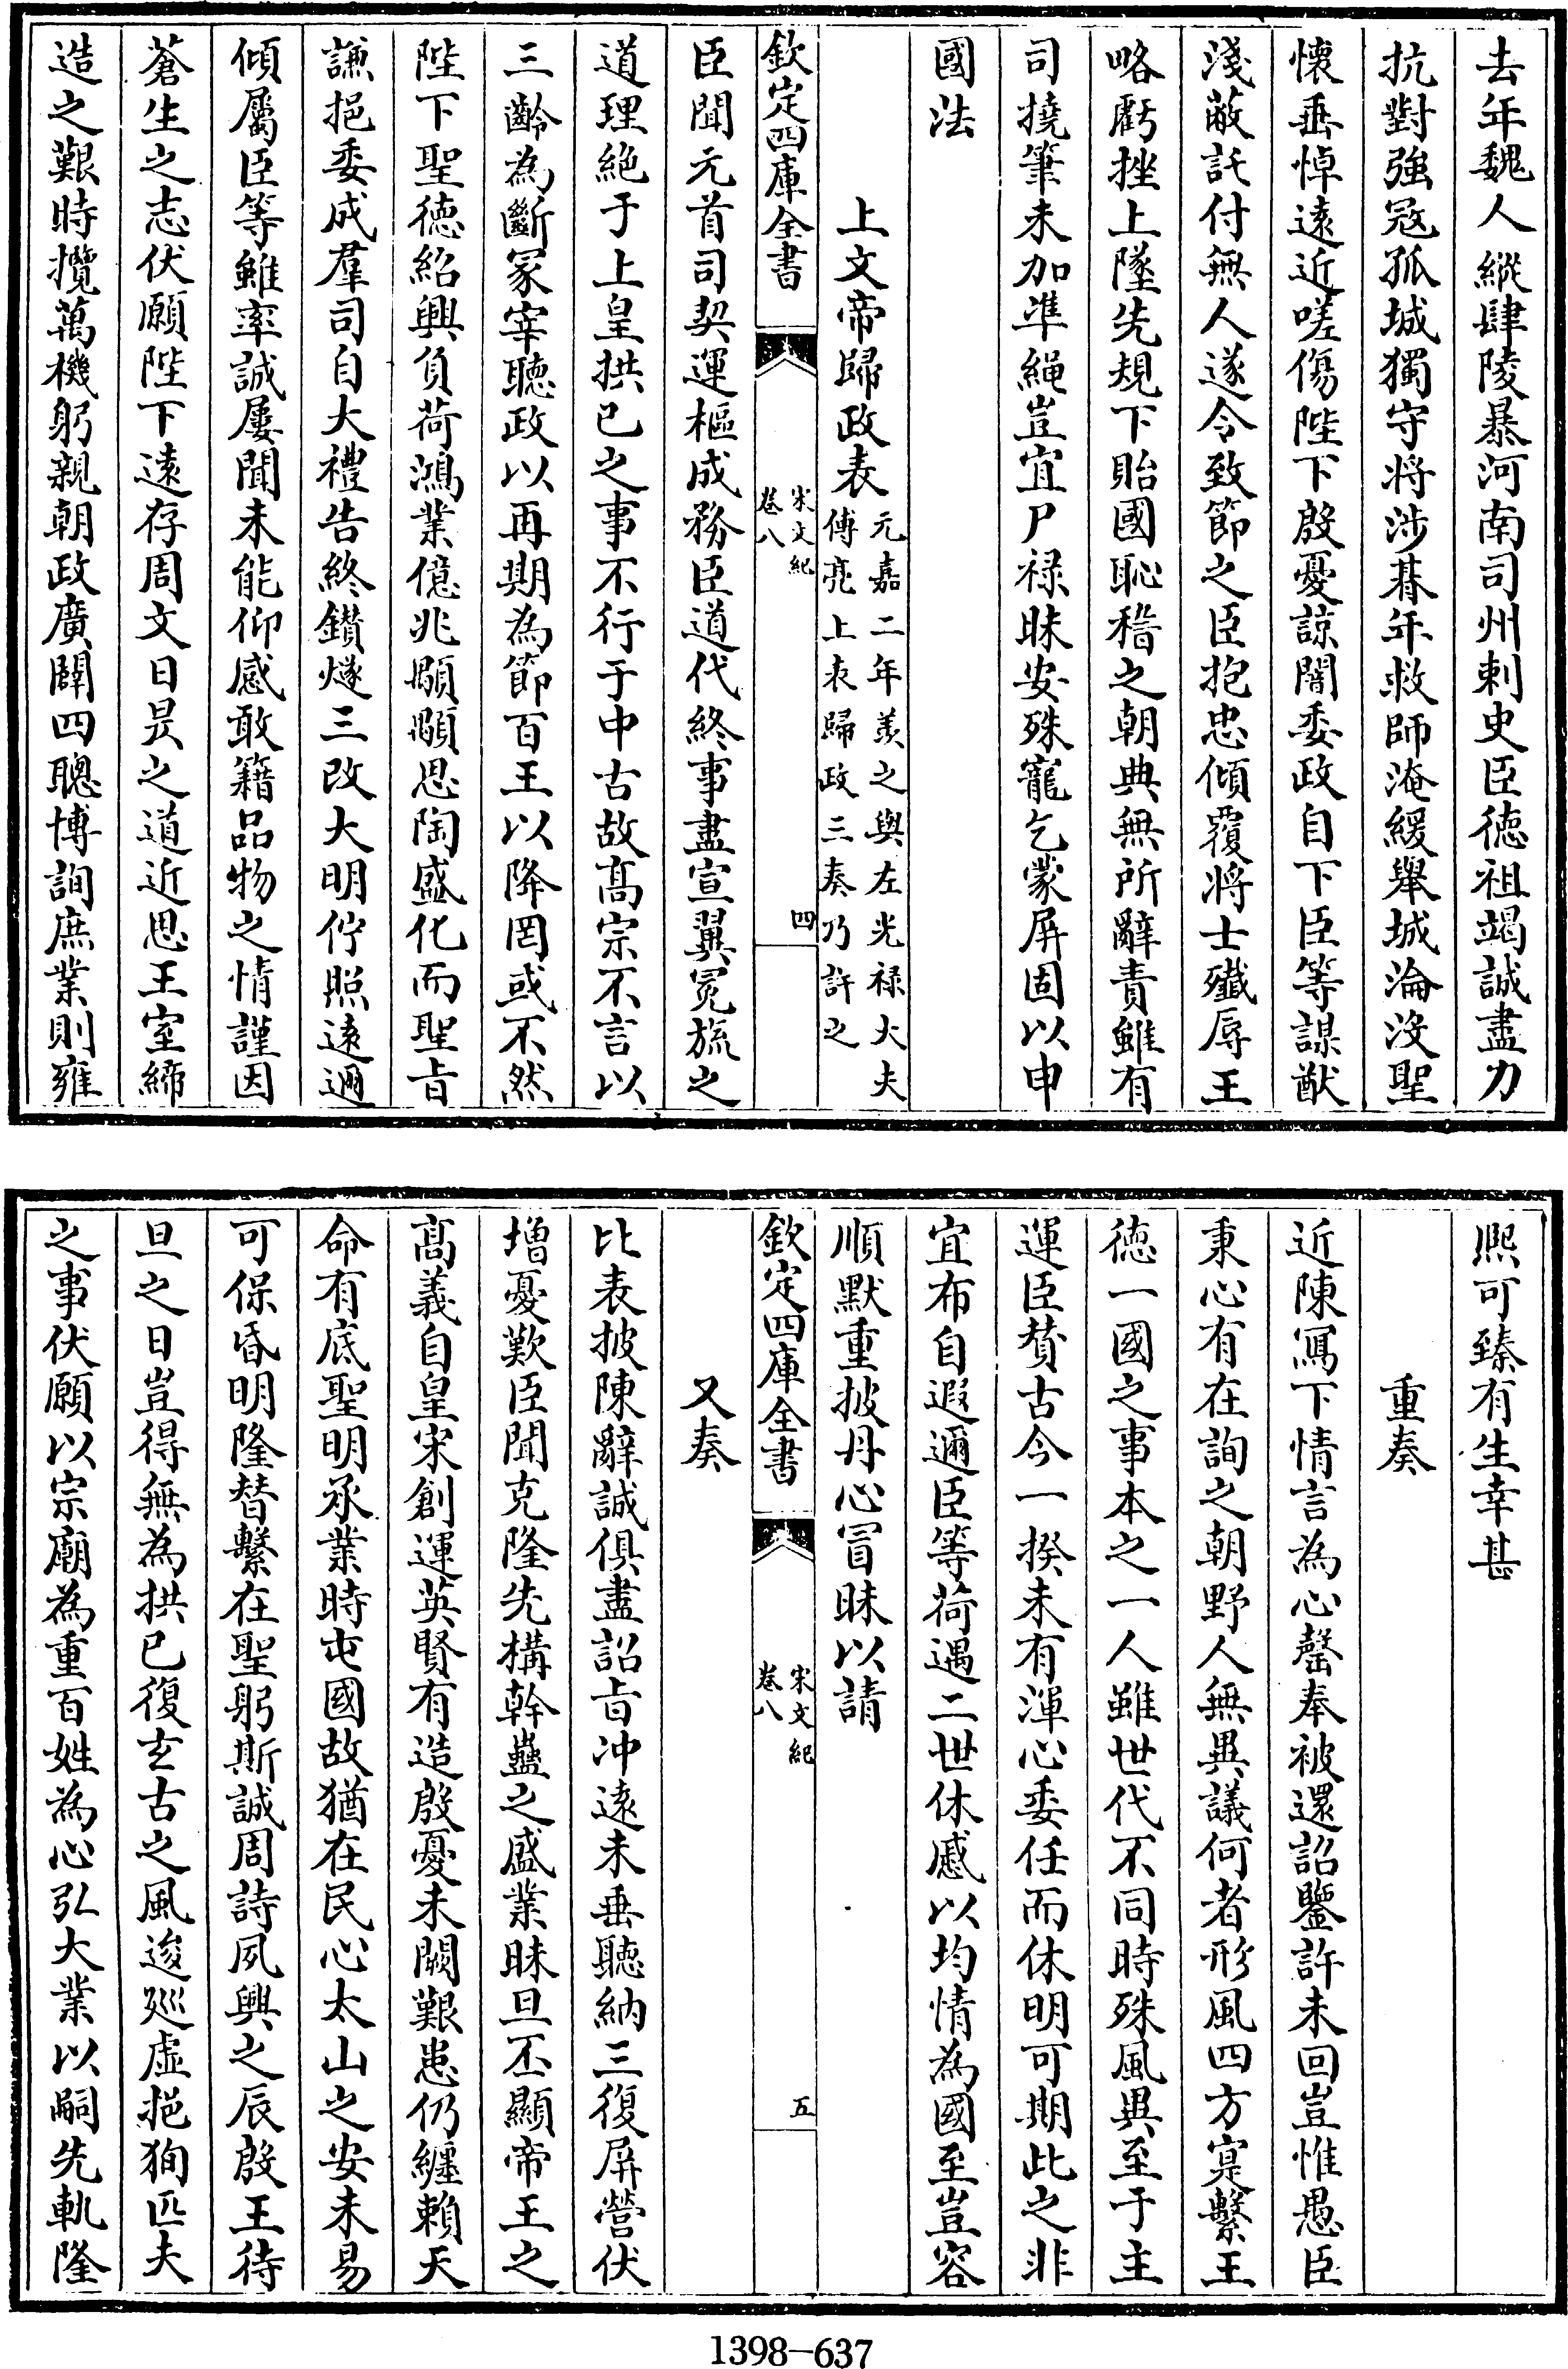 去年魏人縱肆陵暴河南司州刺史臣德祖竭誠盡力
抗對強冦孤城獨守將涉朞年救師淹緩舉城淪沒聖
懷垂悼遠近嗟傷陛下殷憂諒闇委政自下臣等謀猷
淺蔽託付無人遂令致節之臣抱忠傾覆將士殲辱王
略虧挫上墜先規下貽國恥稽之朝典無所辭責雖有
司撓筆未加準繩豈宜尸祿昧安殊寵乞蒙屏固以申
國法
上文帝歸政表元嘉二年羨之與左光祿大夫
傅亮上表歸政三奏乃許之
欽定四庫全書
宋文紀
卷八
四
臣聞元首司契運樞成務臣道代終事盡宣翼冕旒之
道理絕于上皇拱已之事不行于中古故高宗不言以
三齡為斷冢宰聽政以再期為節百王以降罔或不然
陛下聖德紹興負荷鴻業億兆顒顒思陶盛化而聖旨
謙挹委成羣司自大禮告終鑽燧三改大明佇照遠邇
傾屬臣等雖率誠屢聞未能仰感敢籍品物之情謹因
蒼生之志伏願陛下遠存周文日昃之道近思王室締
造之艱時攬萬機躬親朝政廣闢四聰博詢庶業則雍
熙可臻有生幸甚
重奏
近陳寫下情言為心罄奉被還詔鑒許未回豈惟愚臣
秉心有在詢之朝野人無異議何者形風四方寔繫王
德一國之事本之一人雖世代不同時殊風異至于主
運臣贊古今一揆未有渾心委任而休明可期此之非
宜布自遐邇臣等荷遇二世休慼以均情為國至豈容
順默重披丹心冐昧以請
欽定四庫全書
宋文紀
卷八
五
又奏
比表披陳辭誠俱盡詔旨冲遠未垂聽納三復屏營伏
增憂歎臣聞克隆先構幹蠱之盛業昧旦丕顯帝王之
高義自皇宋創運英賢有造殷憂未闕艱患仍纏賴天
命有底聖明承業時屯國故猶在民心太山之安未易
可保昏明隆替繫在聖躬斯誠周詩夙興之辰殷王待
旦之日豈得無為拱已復玄古之風逡廵虛挹狥匹夫
之事伏願以宗廟為重百姓為心弘大業以嗣先軌隆
1398—637